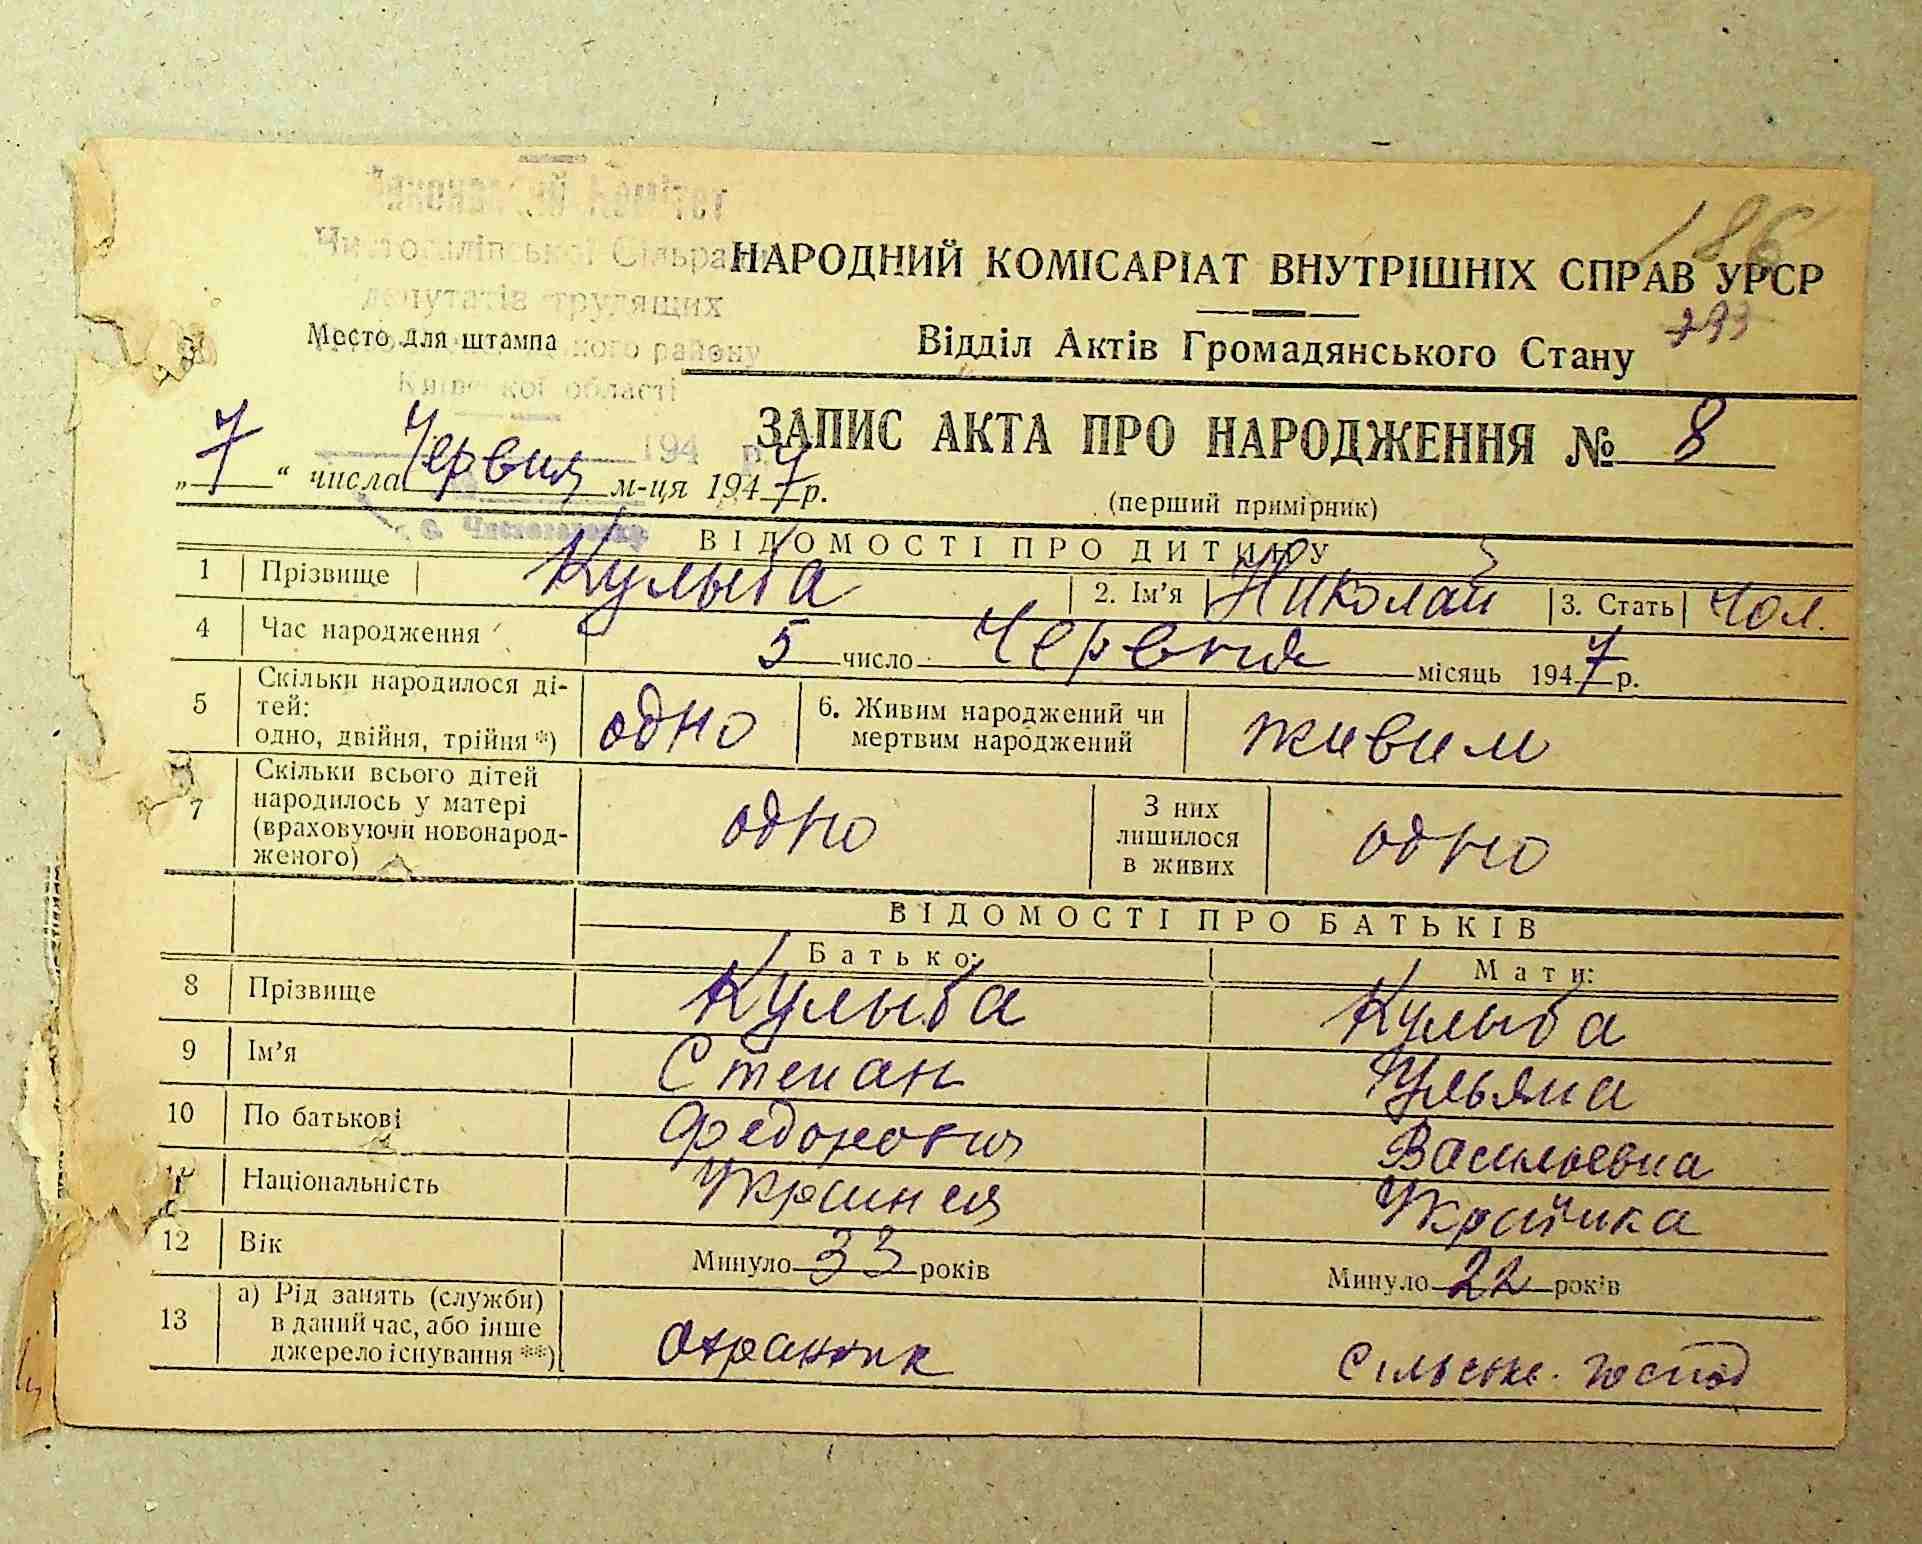 186
НАРОДНИЙ КОМІСАРІАТ ВНУТРІШНІХ СПРАВ УРСР
Сільради
депутатів трудящих
Место для штампа
району
Відділ Актів Громадянського Стану
793
Київської області
ЗАПИС АКТА ПРО НАРОДЖЕННЯ № 8
194 р.
„7“ числа Червня м-ця 1947 р.
(перший примірник)
ВІДОМОСТІ ПРО ДИТИНУ
1 Прізвище Кулыба 2. Ім'я Николай 3. Стать Чол.
4 Час народження 5 число Червня місяць 1947 р.
5 Скільки народилося ді-
тей:
одно, двійня, трійня *) одно 6. Живим народжений чи
мертвим народжений живим
7 Скільки всього дітей
народилось у матері
(враховуючи новонарод-
женого) одно З них
лишилося
в живих одно
ВІДОМОСТІ ПРО БАТЬКІВ
Батько: Мати:
8 Прізвище Кулыба Кулыба
9 Ім'я Степан Ульяна
10 По батькові Федорович Васильевна
11 Національність Українец Українка
12 Вік Минуло 33 років Минуло 22 років
13 а) Рід занять (служби)
в даний час, або інше
джерело існування **) Охранник Сільське. господ